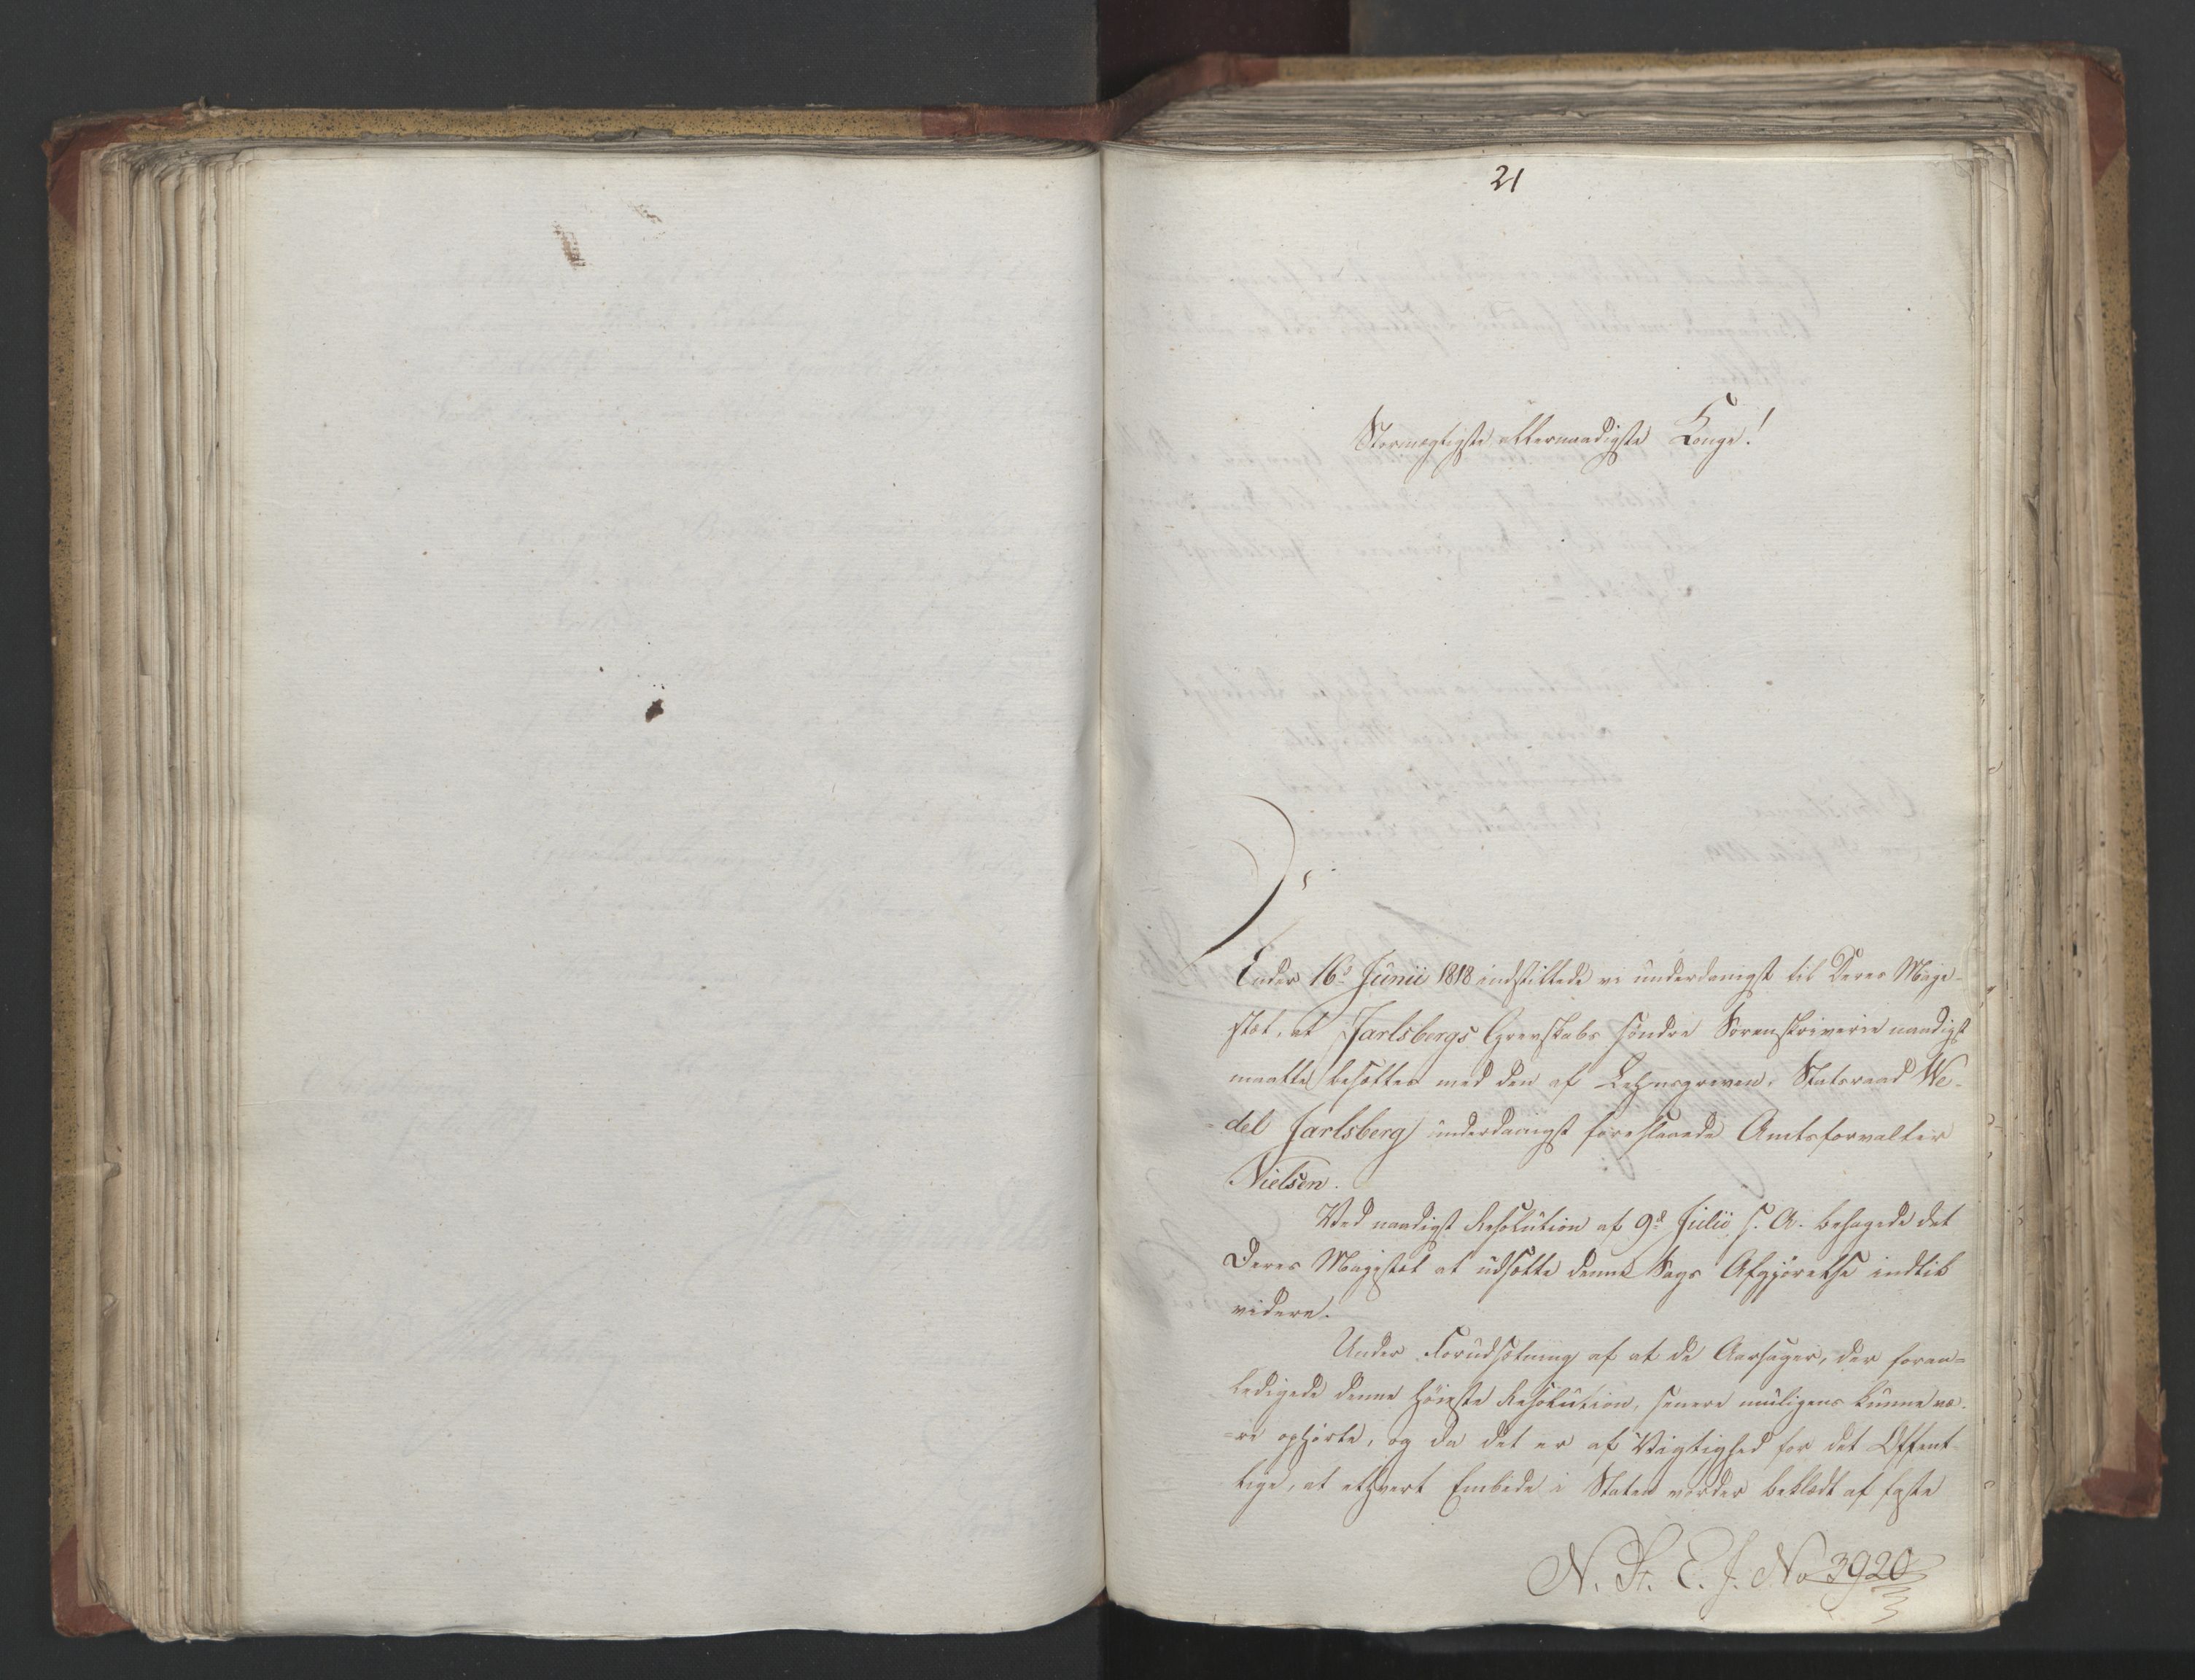 21
Stormægtigste Allernaadigste Konge!
Under 16de Junii 1818 indstillede vi underdanigst til Deres Maje-
stæt, at Jarlsbergs Grevskabs søndre Sorenskriverie naadigst
maatte besættes med den af Lehnsgreven, Statsraad We-
del Jarlsberg underdanigst foreslaaede Amtsforvalter
Nielsen.
Ved naadigst Resolution af 9de Julii s. A. behagede det
Deres Majestæt at udsætte denne Sags Afgjørelse indtil
videre.
Under Forudsætning af at de Aarsager, der foran-
ledigede denne høieste Resolution, senere muligens kunne væ-
re ophørte, og da det er af Vigtighed for det Offent-
lige, at ethvert Embede i Staten vorder beklædt af faste
N. St. E. J. No 3920